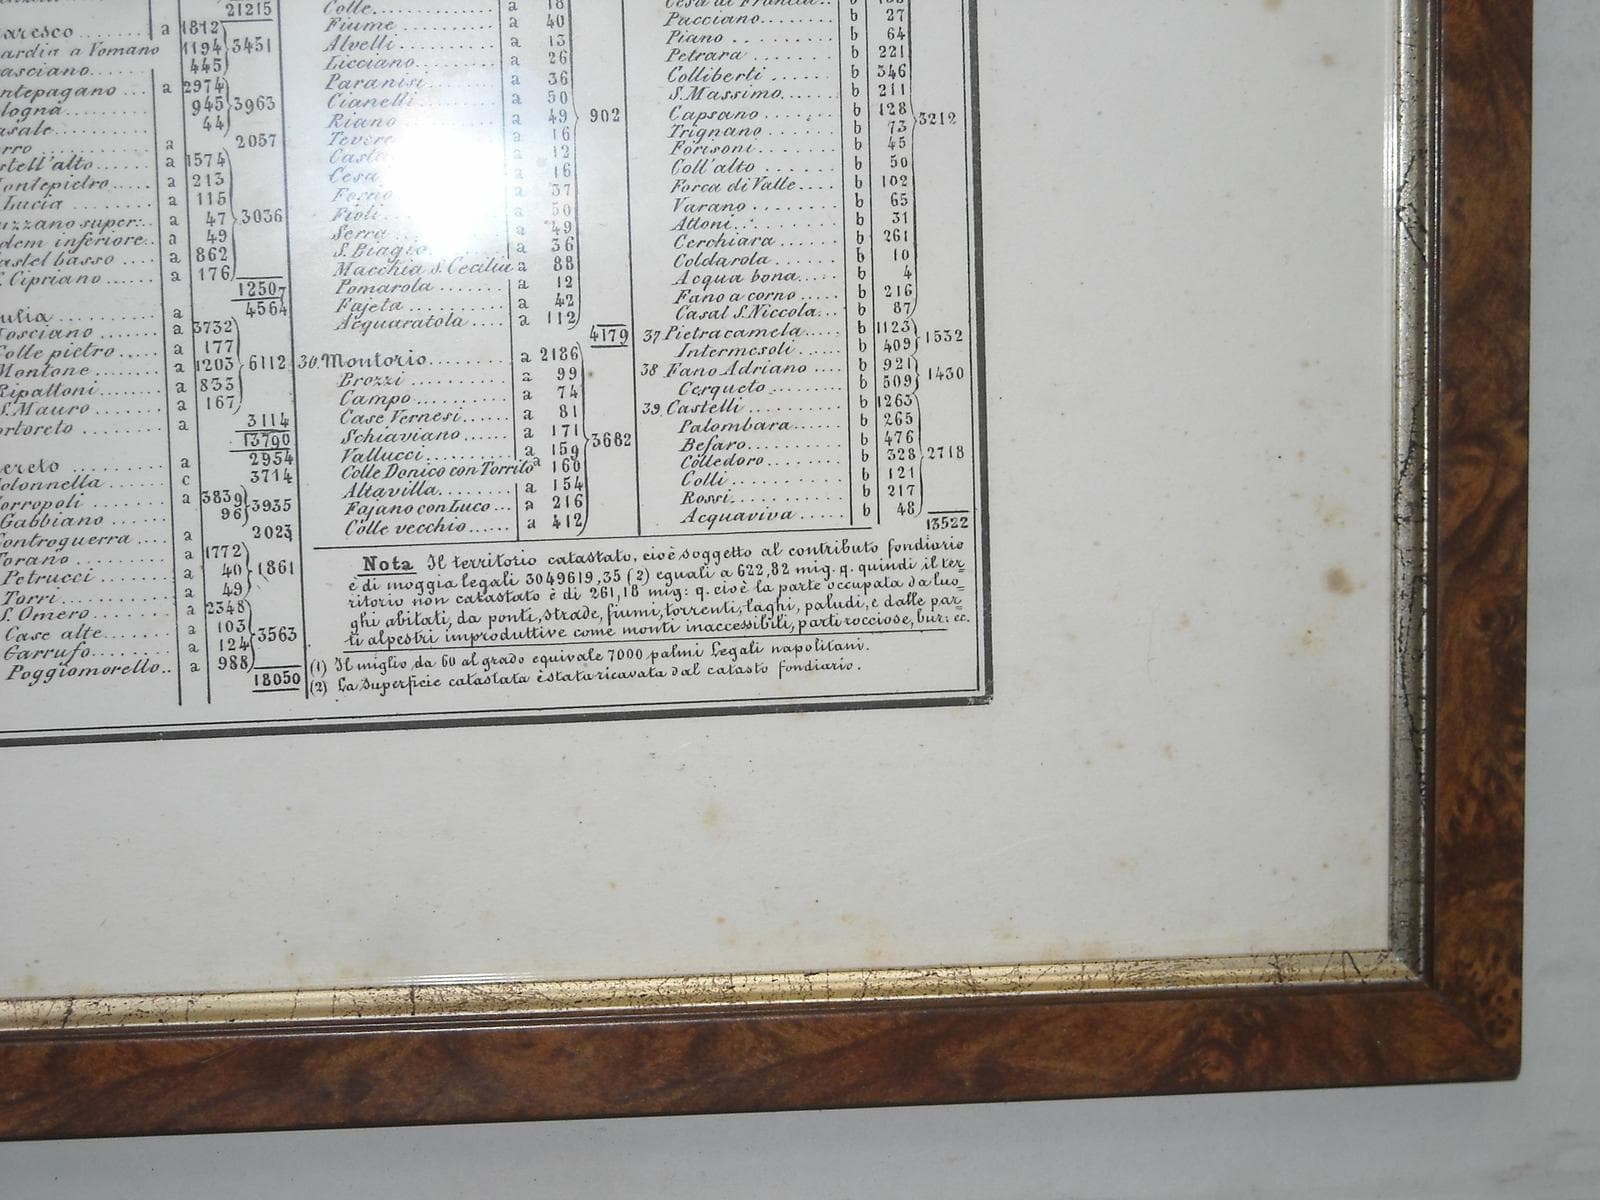 21215
aresco a 1812
ardia a Vomano 1194 3451
asciano 445
ntepagano a 2974
logna 945 3963
asale 44
rro a 2057
stell'alto a 1574
ontepietro a 213
Lucia a 115
uzzano super: a 47 3036
dem inferiore a 49
astel basso a 862
S. Cipriano a 176
12507
ulia a 4564
osciano a 3732
Colle pietro a 177
Montone a 1203 6112
Ripattoni a 833
S. Mauro a 167
ortoreto a 3114
13790
ereto a 2954
olonnella c 3714
orropoli a 3839
Gabbiano 96 3935
ontroguerra a 2023
Torano a 1772
Petrucci a 40 1861
Torri a 49
S. Omero a 2348
Case alte a 103
Garrufo a 124 3563
Poggiomorello a 988
18050
Colle a 18
Fiume a 40
Alvelli a 13
Licciano a 26
Paranisi a 36
Cianelli a 50
Riano a 49 902
Tevere a 16
a 12
Cesa a 16
Forno a 37
Fioli a 50
Serra a 49
S. Biagio a 36
Macchia S. Cecilia a 88
Pomarola a 12
Fajeta a 42
Acquaratola a 112
4179
30. Montorio a 2186
Brozzi a 99
Campo a 74
Case Vernesi a 81
Schiaviano a 171
Vallucci a 159 3682
Colle Donico con Torrito a 160
Altavilla a 154
Fajano con Luco a 216
Colle vecchio a 412
Cesa di Francia b
Pacciano b 27
Piano b 64
Petrara b 221
Colliberti b 346
S. Massimo b 211
Capsano b 128
Trignano b 73 3212
Forisoni b 45
Coll'alto b 50
Forca di Valle b 102
Varano b 65
Attoni b 31
Cerchiara b 261
Coldarola b 10
Acqua bona b 4
Fano a corno b 216
Casal S. Niccola b 87
37 Pietracamela b 1123
Intermesoli b 409 1532
38 Fano Adriano b 921
Cerqueto b 509 1430
39. Castelli b 1263
Palombara b 265
Befaro b 476
Colledoro b 328 2718
Colli b 121
Rossi b 217
Acquaviva b 48
13522
Nota Il territorio catastato, cioè soggetto al contributo fondiario
è di moggia legali 3049619,35 (2) eguali a 622,82 mig. q. quindi il ter=
ritorio non catastato è di 261,18 mig: q. cioè la parte occupata da luo=
ghi abitati, da ponti, strade, fiumi, torrenti, laghi, paludi, e dalle par=
ti alpestri improduttive come monti inaccessibili, parti rocciose, bur: ec.
(1) Il miglio da 60 al grado equivale 7000 palmi Legali napolitani.
(2) La Superficie catastata è stata ricavata dal catasto fondiario.